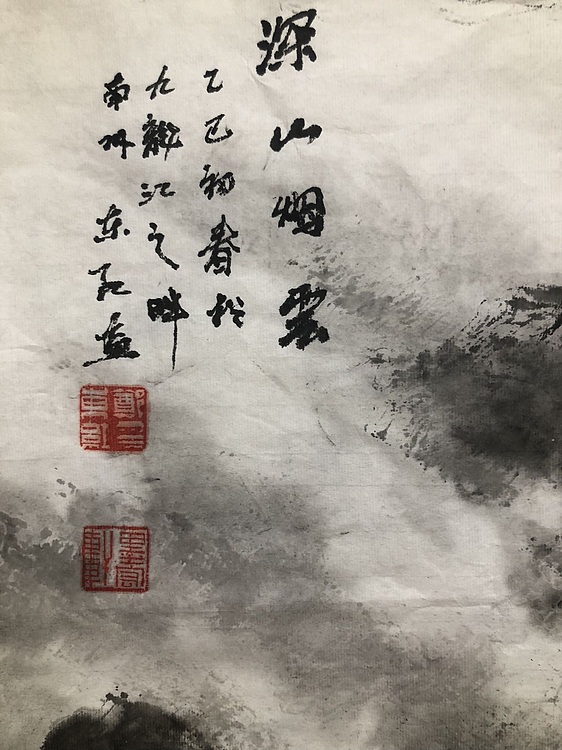 深山烟雲
乙巳初春於
九龍江之畔
南州东紅画